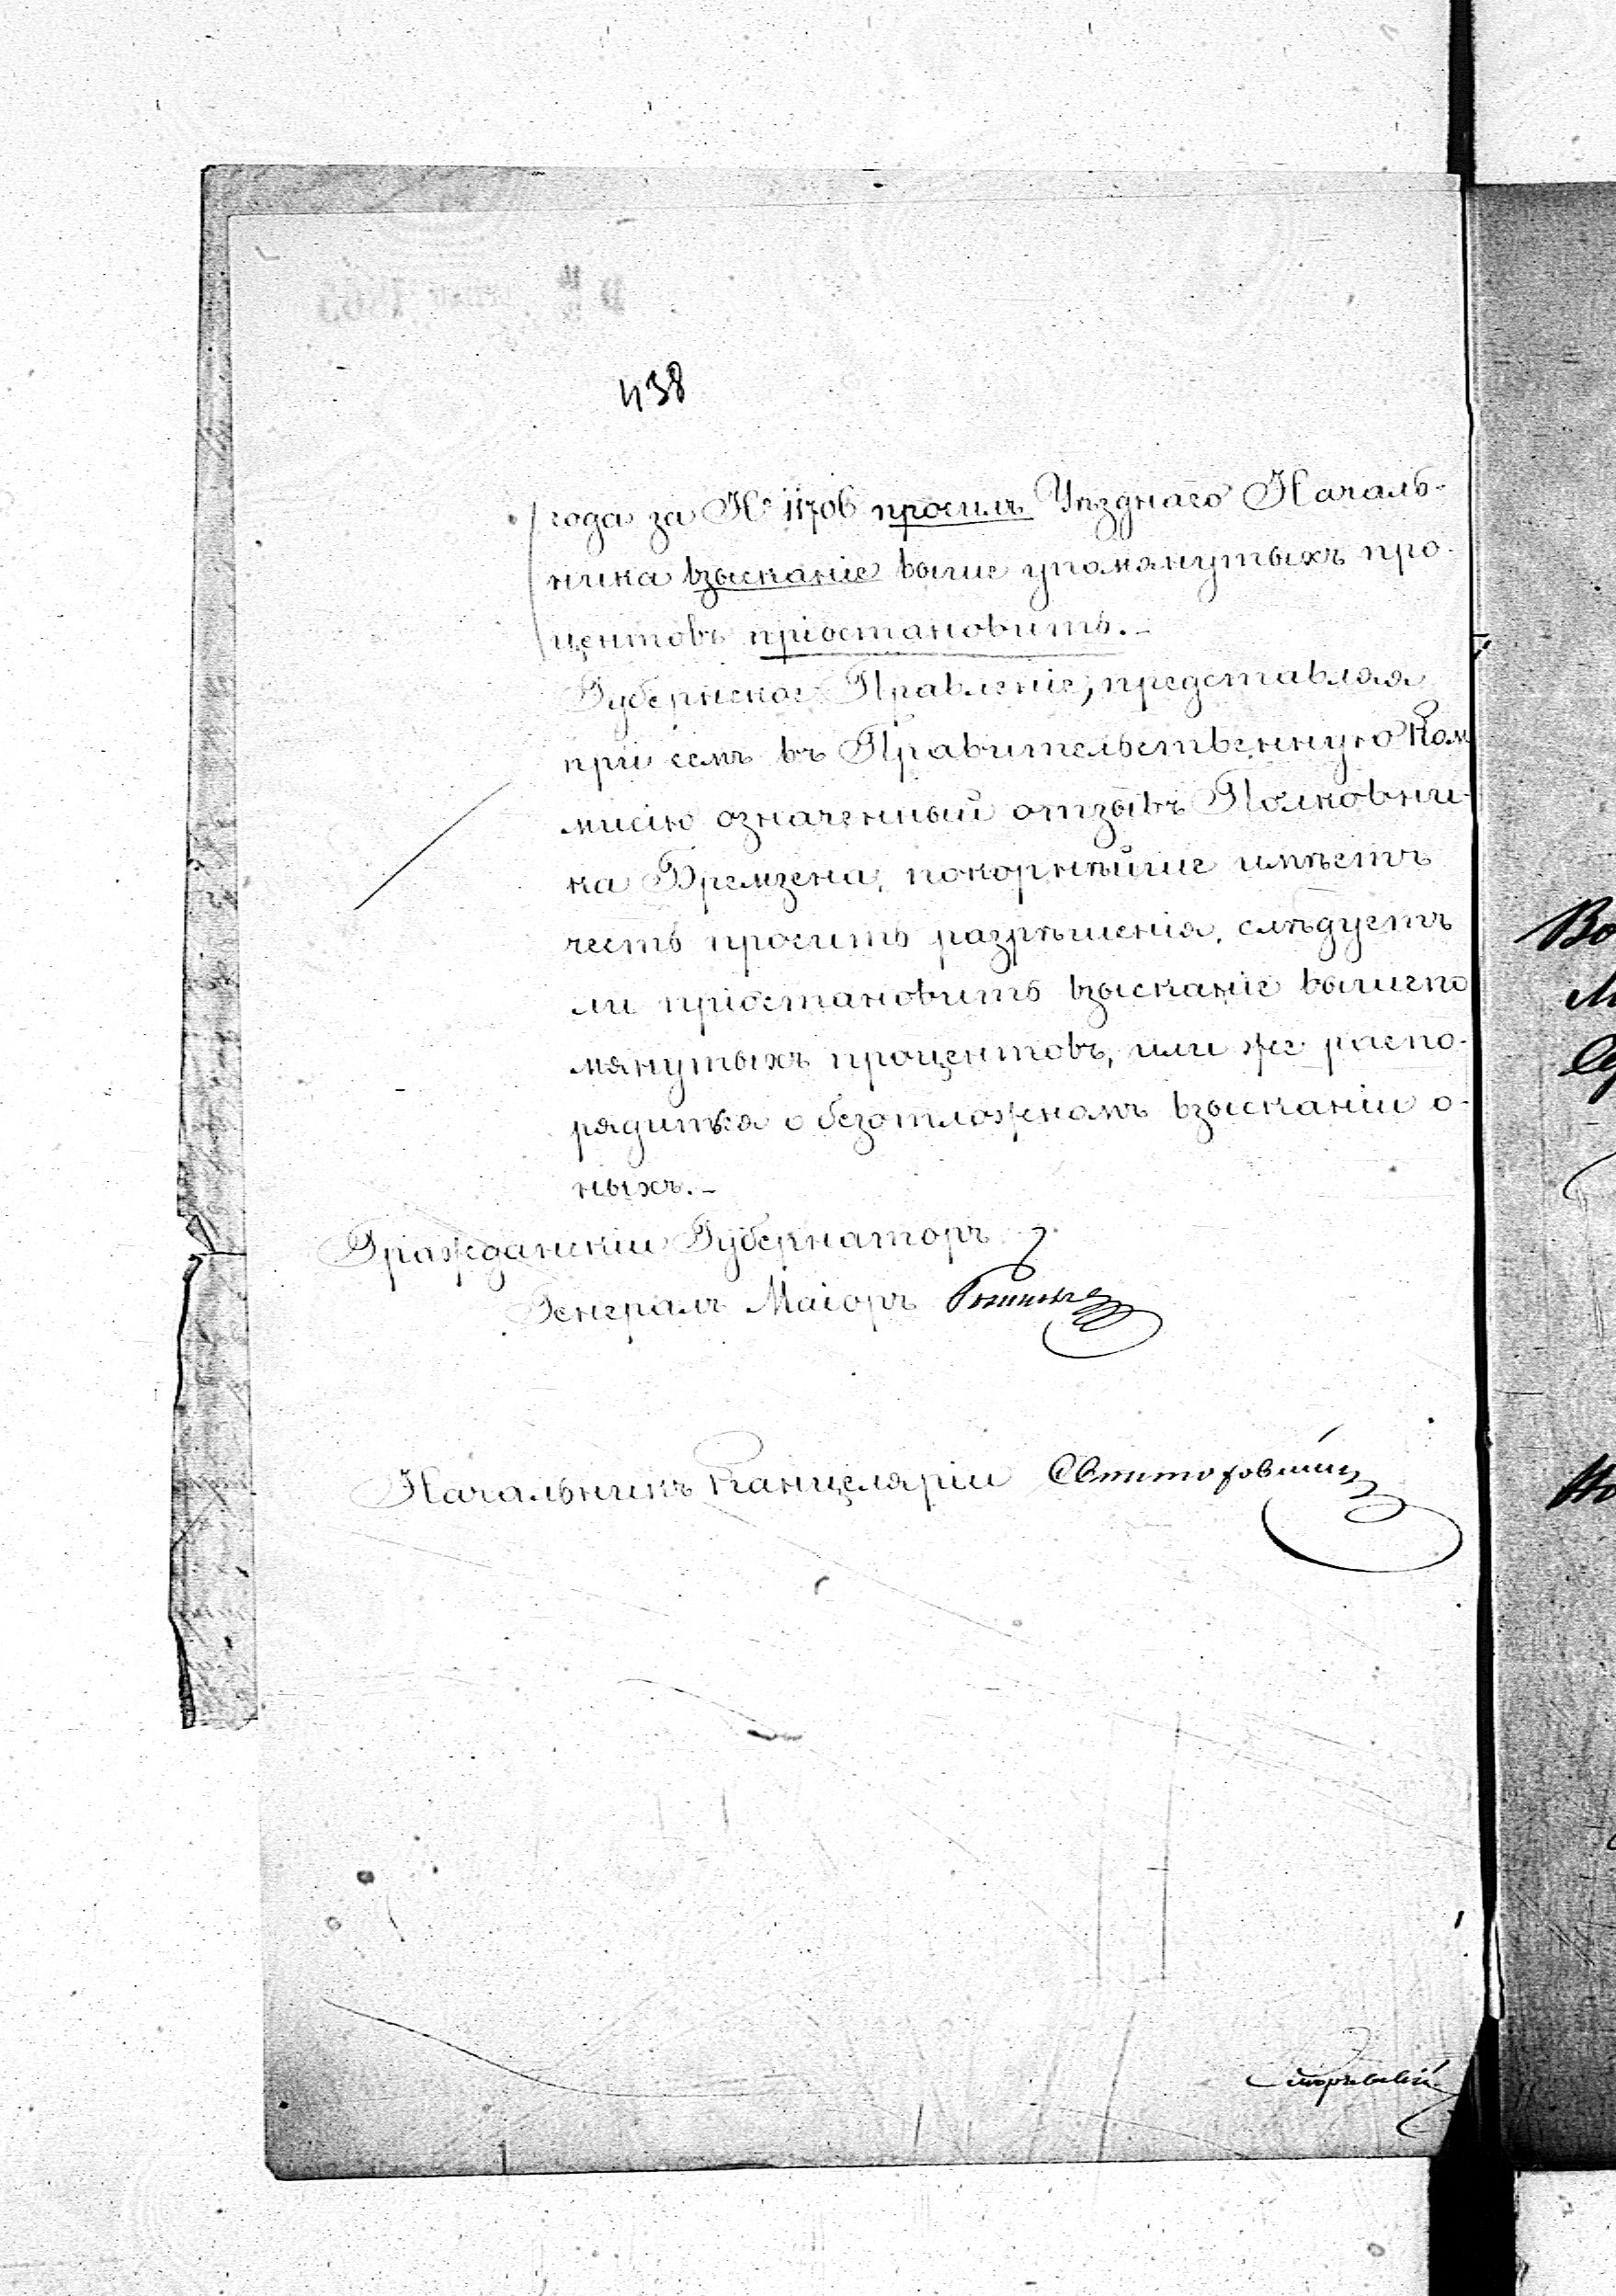 438
года за № 11706 просилъ Уѣзднаго Началь-
ника взысканіе выше упомянутыхъ про-
центовъ пріостановить.-
Губернское Правленіе, представляя
при семъ въ Правительственную Ком
мисію означенный отзывъ Полковни-
ка Бремзена, покорнѣйше имѣетъ
честь просить разрѣшенія, слѣдуетъ
ли пріостановить взысканіе вышепо
мянутыхъ процентовъ, или же распо-
рядиться о безотложномъ взысканіи о-
ныхъ.-
Гражданскій Губернаторъ
Генералъ Маіоръ
Начальникъ Канцеляріи
Во